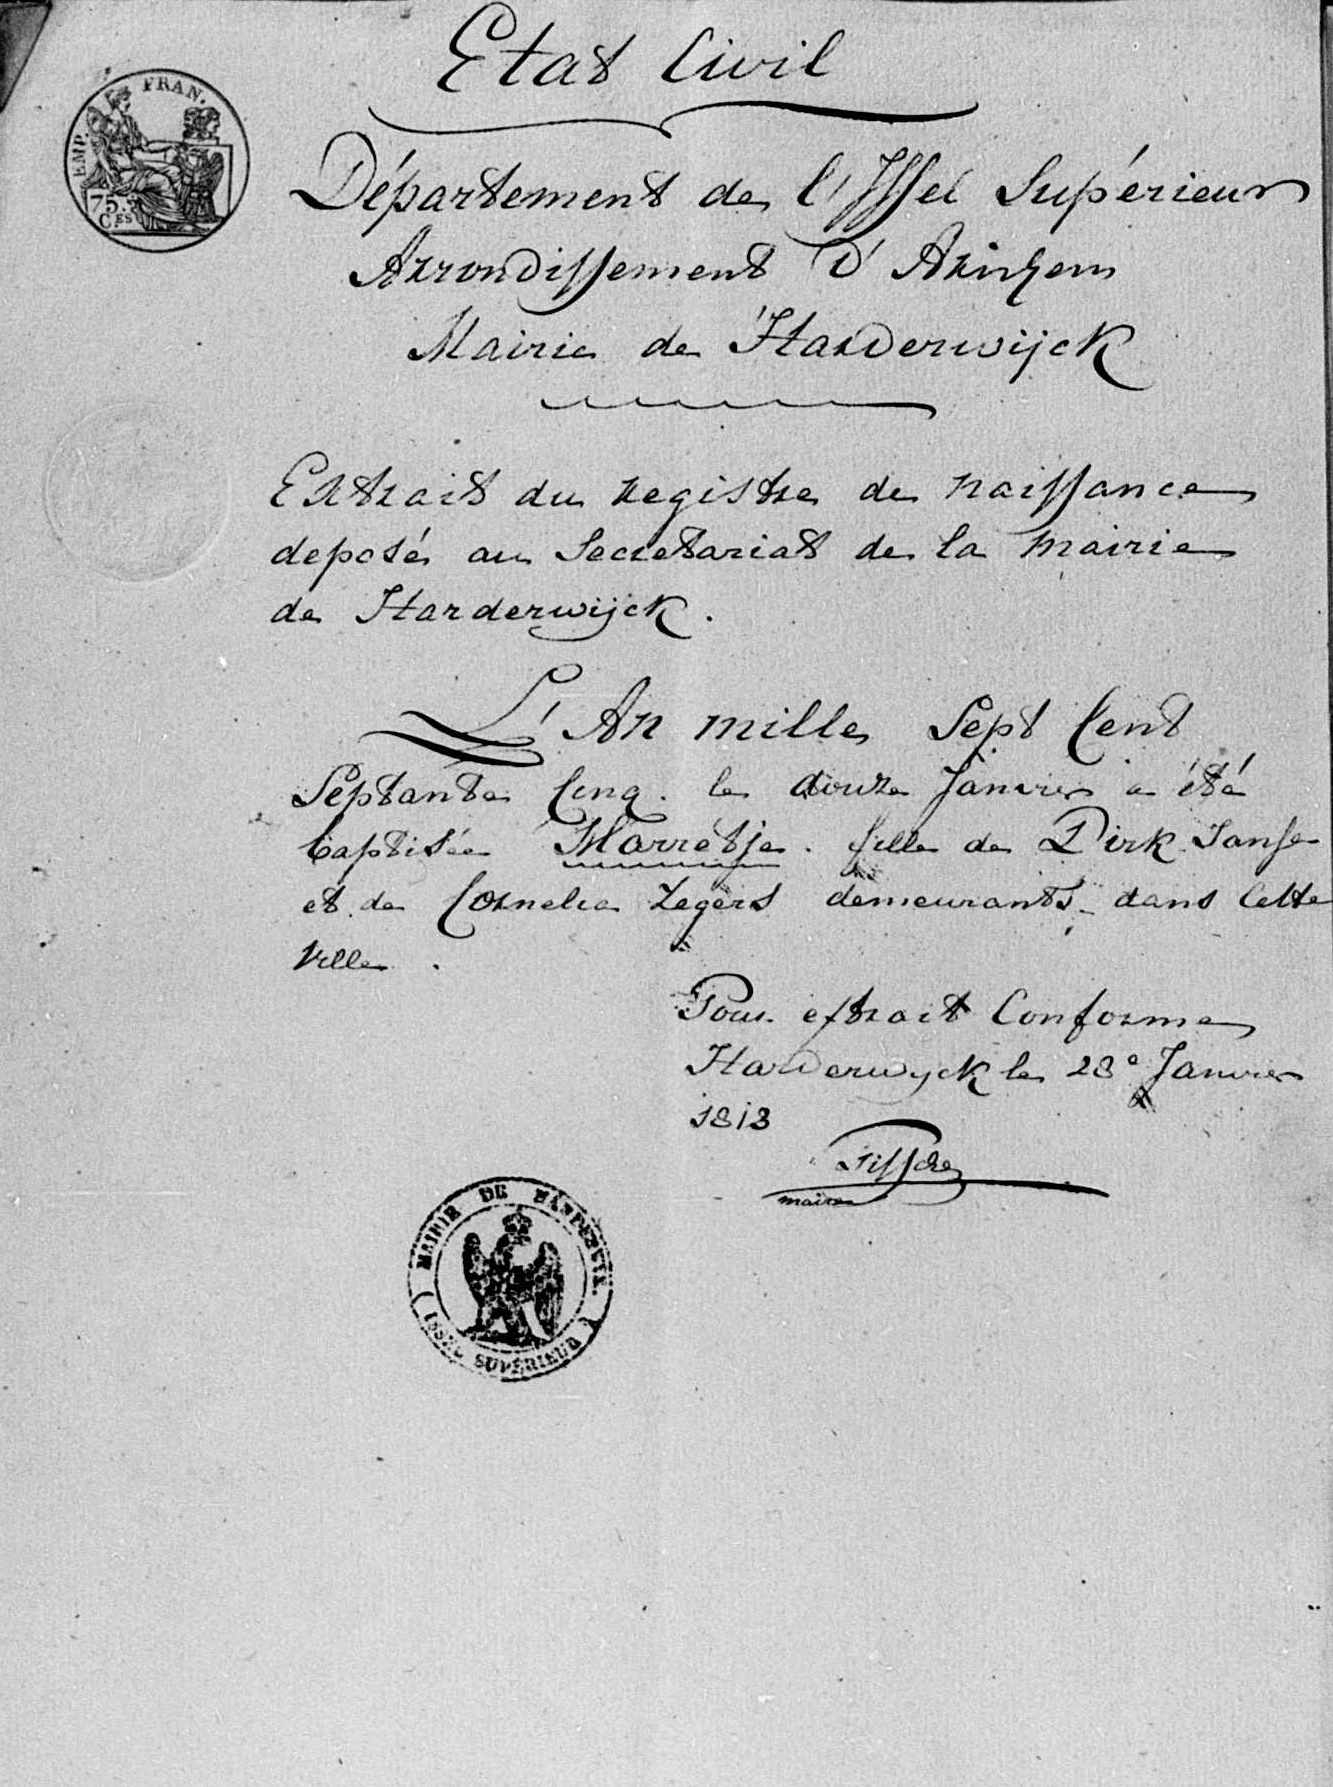 Etat Civil
EMP. FRAN.
75.
C.ES
Département de l'Issel Supérieur
Arrondissement d'Arnhem
Mairie de Harderwijck
Extrait du registre de naissance
deposé au Secretariat de la mairie
de Harderwijck.
L'An mille Sept Cent
Septante Cinq. le douze Janvier a été
baptisée Marretje. fille de Dirk Janse
et de Cornelia Zegers demeurants dans Cette
Ville.
Pour extrait Conforme
Harderwyck le 28e Janvier
1813
maire
MAIRIE DE HARDERWIK.
ISSEL SUPÉRIEUR